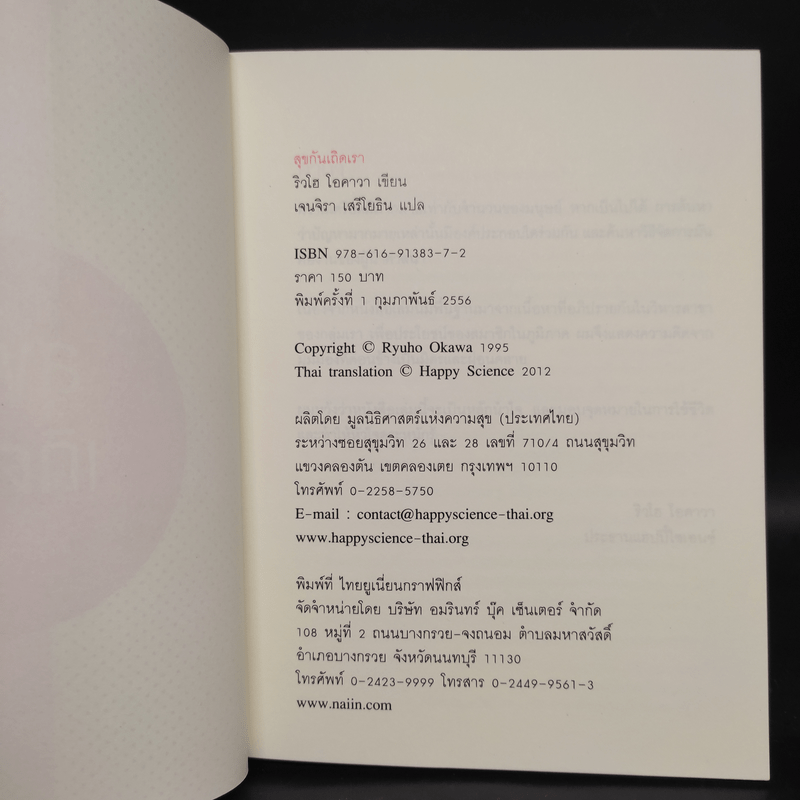 สุขกันเถิดเรา
ริวโฮ โอคาวา เขียน
เจนจิรา เสรีโยธิน แปล
ISBN 978-616-91383-7-2
ราคา 150 บาท
พิมพ์ครั้งที่ 1 กุมภาพันธ์ 2556
Copyright © Ryuho Okawa 1995
Thai translation © Happy Science 2012
ผลิตโดย มูลนิธิศาสตร์แห่งความสุข (ประเทศไทย)
ระหว่างซอยสุขุมวิท 26 และ 28 เลขที่ 710/4 ถนนสุขุมวิท
แขวงคลองตัน เขตคลองเตย กรุงเทพฯ 10110
โทรศัพท์ 0-2258-5750
E-mail : contact@happyscience-thai.org
www.happyscience-thai.org
พิมพ์ที่ ไทยยูเนี่ยนกราฟฟิกส์
จัดจำหน่ายโดย บริษัท อมรินทร์ บุ๊ค เซ็นเตอร์ จำกัด
108 หมู่ที่ 2 ถนนบางกรวย-จงถนอม ตำบลมหาสวัสดิ์
อำเภอบางกรวย จังหวัดนนทบุรี 11130
โทรศัพท์ 0-2423-9999 โทรสาร 0-2449-9561-3
www.naiin.com